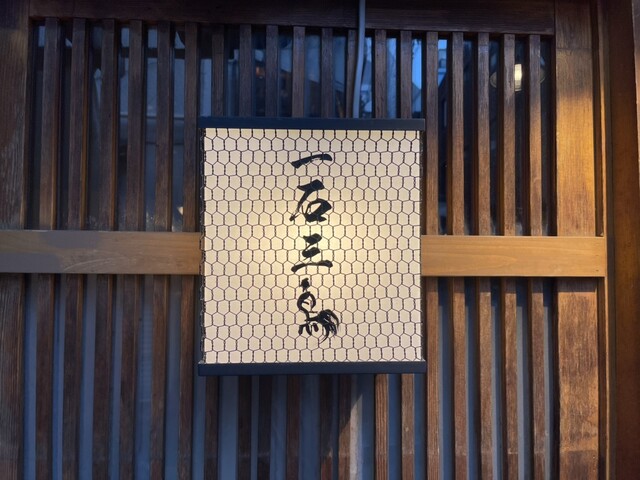 一石三鳥